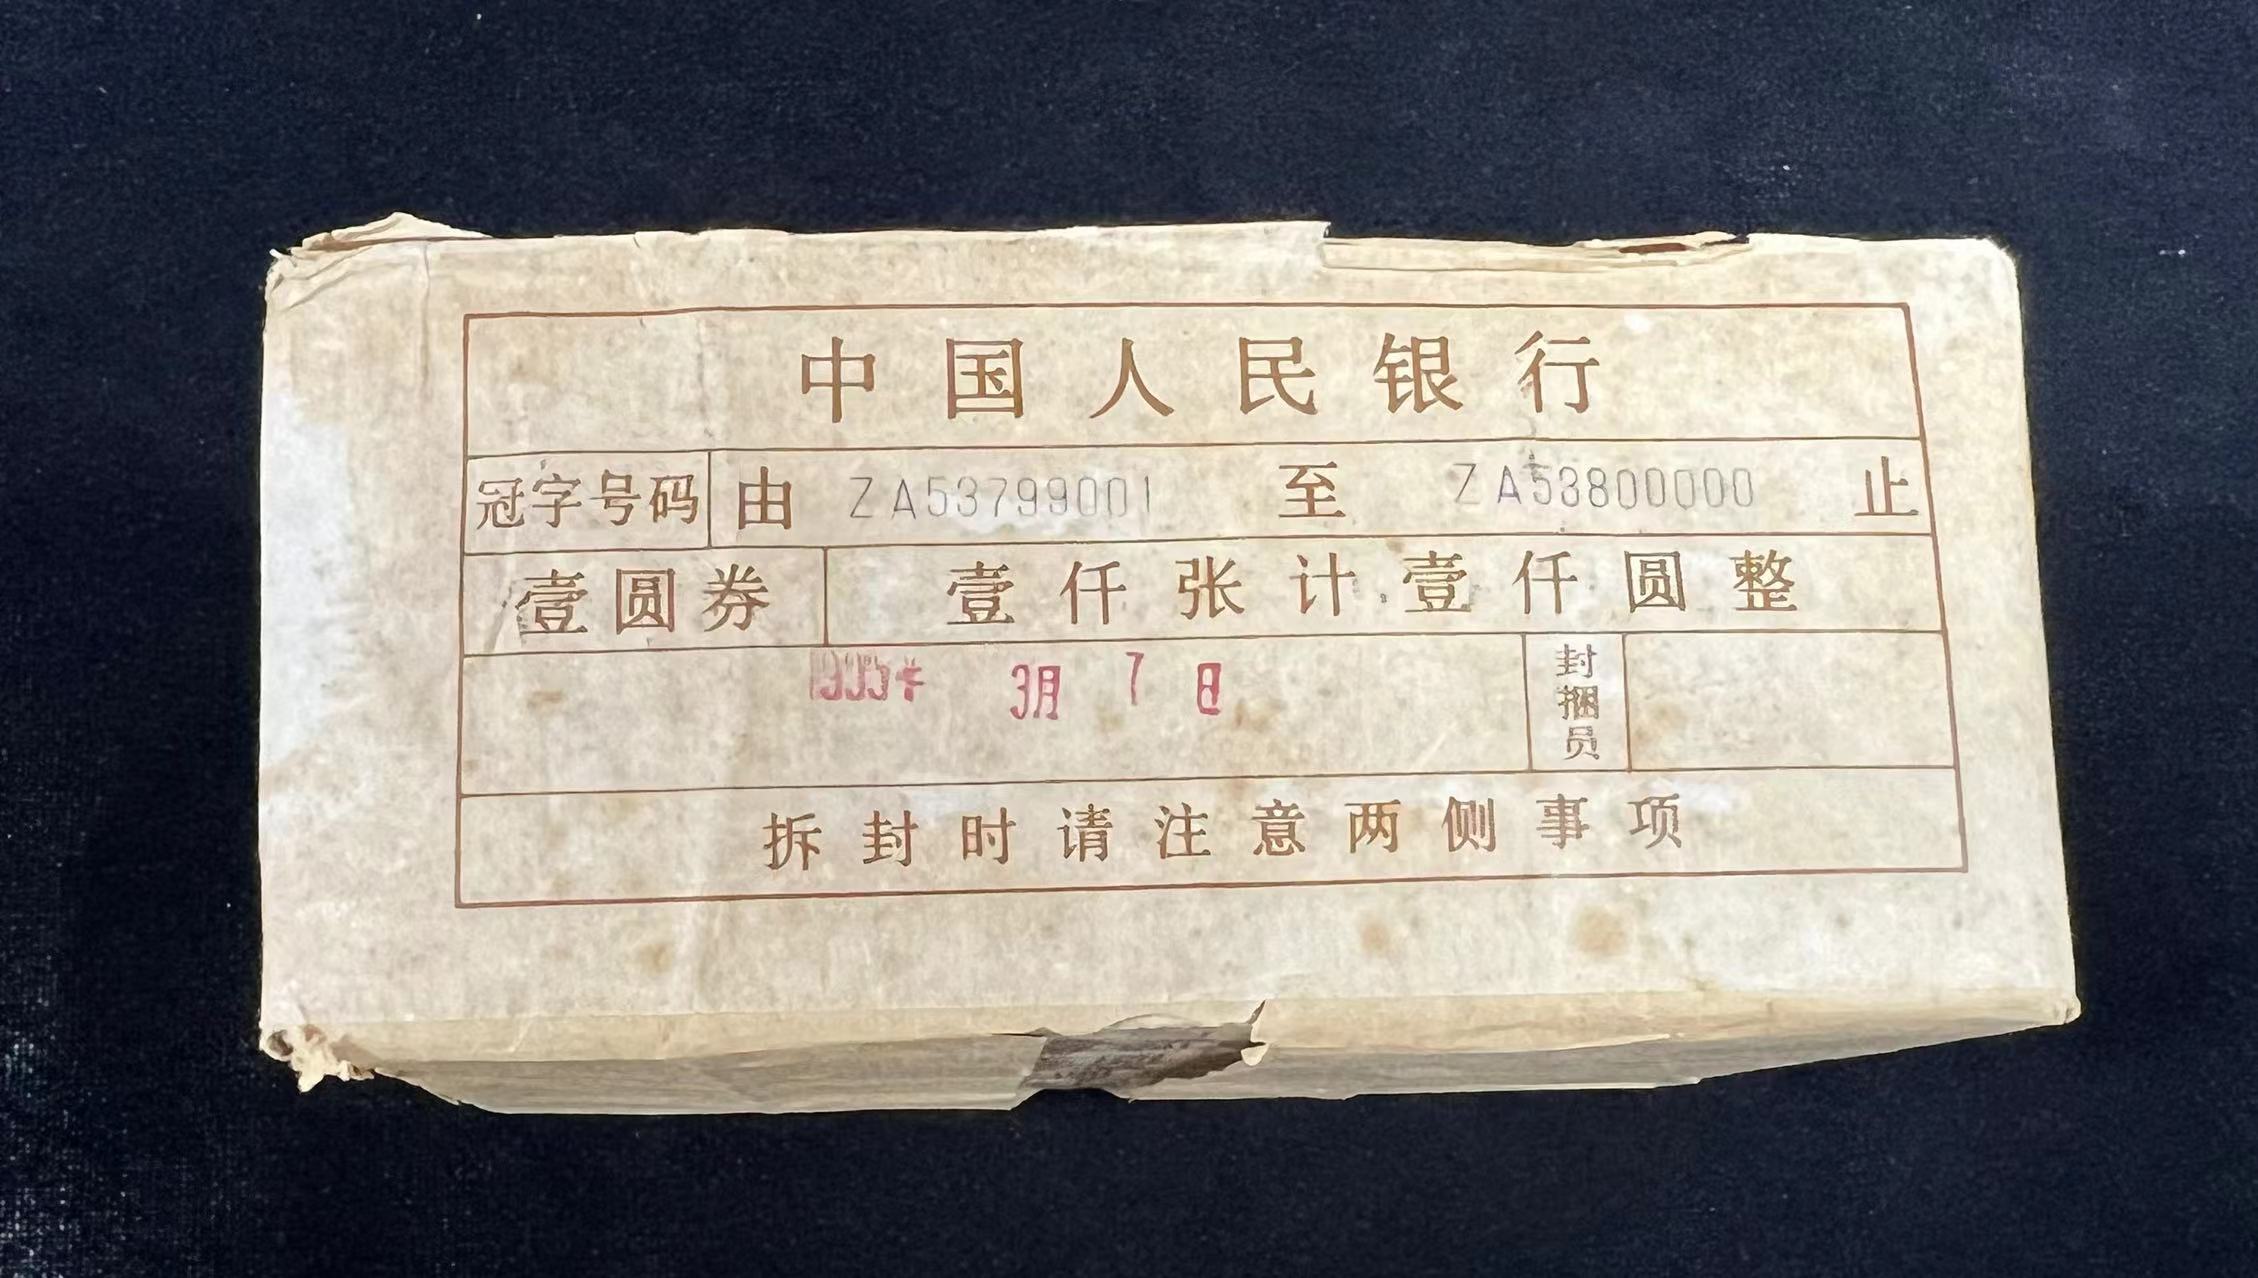 中国人民银行
冠字号码 由 ZA53799001 至 ZA53800000 止
壹圆券 壹仟张计壹仟圆整
1995年 3月 7日 封捆员
拆封时请注意两侧事项